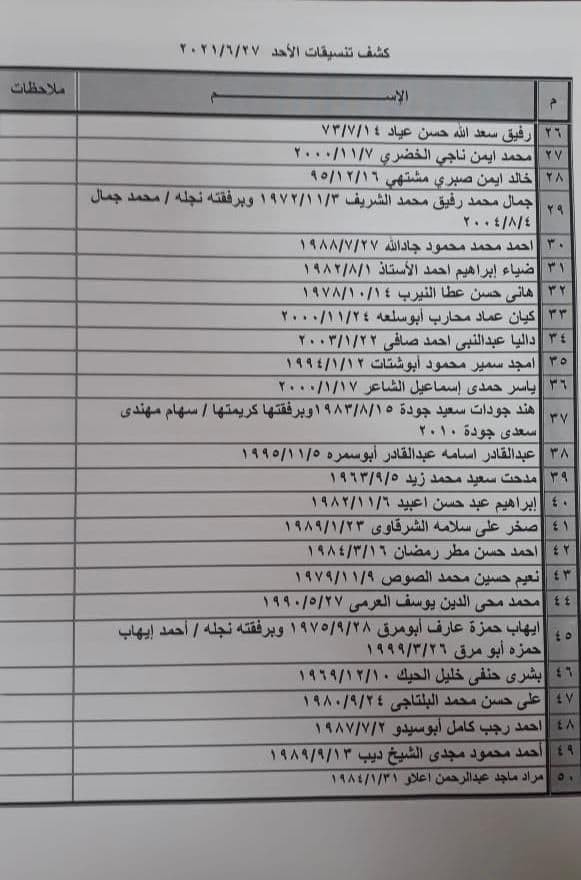 كشف تنسيقات الأحد ٢٠٢١/٦/٢٧
م الإســــم ملاحظات
٢٦ رفيق سعد الله حسن عياد ٧٣/٧/١٤
٢٧ محمد ايمن ناجي الخضري ٢٠٠٠/١١/٧
٢٨ خالد ايمن صبري مشتهي ٩٥/١٢/١٦
٢٩ جمال محمد رفيق محمد الشريف ١٩٧٢/١١/٣ وبرفقته نجله / محمد جمال
٢٠٠٤/٨/٤
٣٠ احمد محمد محمود جادالله ١٩٨٨/٧/٢٧
٣١ ضياء إبراهيم احمد الأستاذ ١٩٨٢/٨/١
٣٢ هانى حسن عطا النيرب ١٩٧٨/١٠/١٤
٣٣ كيان عماد محارب أبوسلعه ٢٠٠٠/١١/٢٤
٣٤ داليا عبدالنبى احمد صافى ٢٠٠٣/١/٢٢
٣٥ امجد سمير محمود أبوشتات ١٩٩٤/١/١٢
٣٦ ياسر حمدى إسماعيل الشاعر ٢٠٠٠/١/١٧
٣٧ هند جودات سعيد جودة ١٩٨٣/٨/١٥وبرفقتها كريمتها / سهام مهندى
سعدى جودة ٢٠١٠
٣٨ عبدالقادر اسامه عبدالقادر أبوسمره ١٩٩٥/١١/٥
٣٩ مدحت سعيد محمد زيد ١٩٦٣/٩/٥
٤٠ إبراهيم عبد حسن اعبيد ١٩٨٢/١١/٦
٤١ صخر على سلامه الشرقاوى ١٩٨٩/١/٢٣
٤٢ احمد حسن مطر رمضان ١٩٨٤/٣/١٦
٤٣ نعيم حسين محمد الصوص ١٩٧٩/١١/٩
٤٤ محمد محى الدين يوسف العرمى ١٩٩٠/٥/٢٧
٤٥ ايهاب حمزة عارف أبومرق ١٩٧٥/٩/٢٨ وبرفقته نجله / أحمد إيهاب
حمزه أبو مرق ١٩٩٩/٣/٢٦
٤٦ بشرى حنفى خليل الحيك ١٩٦٩/١٢/١٠
٤٧ على حسن محمد البلتاجى ١٩٨٠/٩/٢٤
٤٨ احمد رجب كامل أبوسيدو ١٩٨٧/٧/٢
٤٩ أحمد محمود مجدى الشيخ ديب ١٩٨٩/٩/١٣
٥٠ مراد ماجد عبدالرحمن اعلاو ١٩٨٤/١/٣١